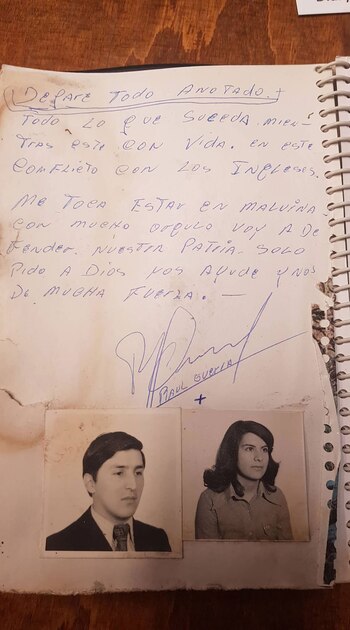 DEJARE TODO ANOTADO. +
TODO LO QUE SUCEDA. MIEN-
TRAS ESTE CON VIDA. EN ESTE
CONFLICTO CON LOS INGLESES.
ME TOCA ESTAR EN MALVINA
CON MUCHO ORGULO VOY A DE
FENDER. NUESTRA PATRIA. SOLO
PIDO A DIOS NOS AYUDE Y NOS
DE MUCHA FUERZA. —
RAUL
+